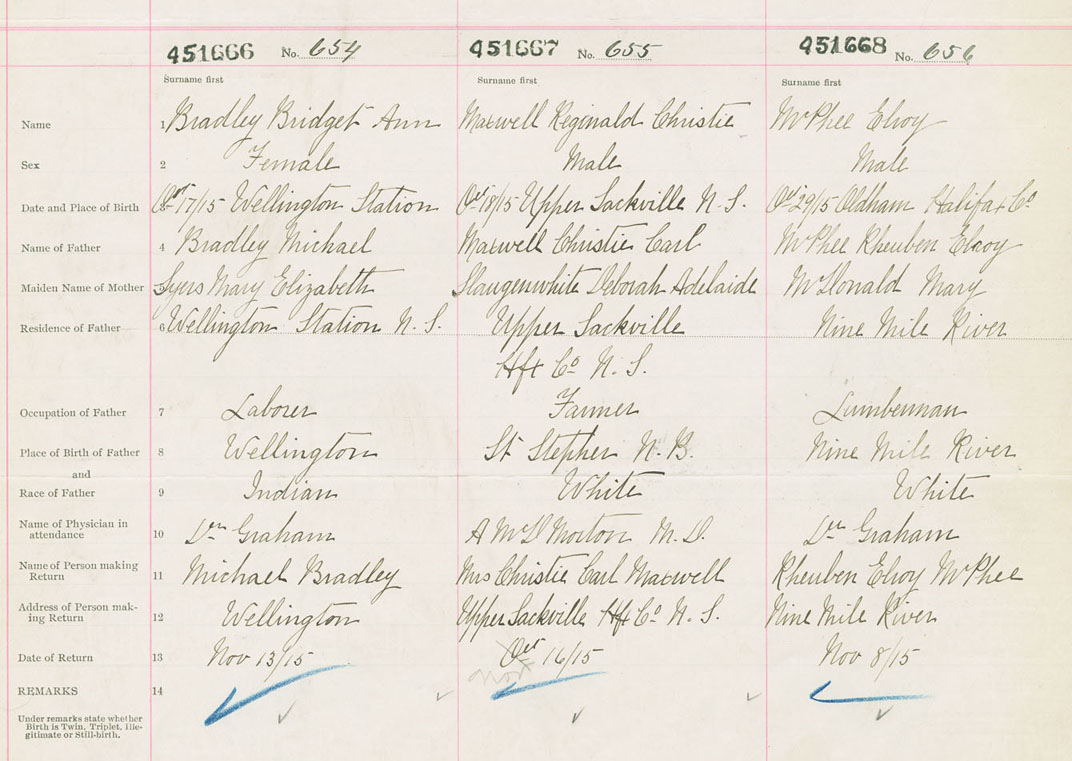 451666 No. 654 451667 No. 655 451668 No. 656
Surname first Surname first Surname first
Name 1 Bradley Bridget Ann Maxwell Reginald Christie McPhee Elroy
Sex 2 Female Male Male
Date and Place of Birth Oct 17/15 Wellington Station Oct 18/15 Upper Sackville N. S. Oct 29/15 Oldham Halifax Co
Name of Father 4 Bradley Michael Maxwell Christie Carl McPhee Rheuben Elroy
Maiden Name of Mother 5 Syers Mary Elizabeth Slaugenwhite Deborah Adelaide McDonald Mary
Residence of Father 6 Wellington Station N. S. Upper Sackville Nine Mile River
Hfx Co N. S.
Occupation of Father 7 Laborer Farmer Lumberman
Place of Birth of Father 8 Wellington St Stephen N. B. Nine Mile River
and
Race of Father 9 Indian White White
Name of Physician in
attendance 10 Dr Graham A McD Morton M. D. Dr Graham
Name of Person making
Return 11 Michael Bradley Mrs Christie Carl Maxwell Rheuben Elroy McPhee
Address of Person mak-
ing Return 12 Wellington Upper Sackville Hfx Co N. S. Nine Mile River
Date of Return 13 Nov 13/15 Oct 16/15 Nov 8/15
Nov
REMARKS 14
Under remarks state whether
Birth is Twin, Triplet, Ille-
gitimate or Still-birth.